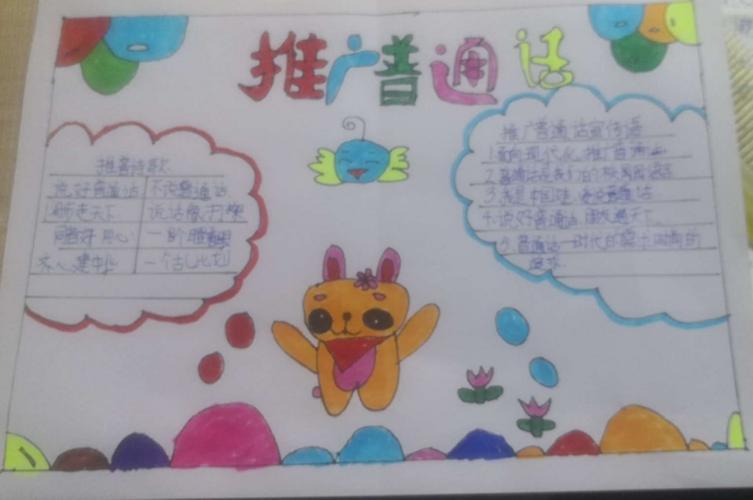 推广普通话
推普诗歌
说好普通话 不说普通话
走天下 说话像打架
同 好用心 一个 眼
齐心建中华 一个 比划
推广普通话宣传语
1.面向现代化,推广普通
2.普通话是我们的校园语言
3.我是中国娃,爱说普通话
4.说好普通话,朋友遍天下
5.普通话一时代的 的